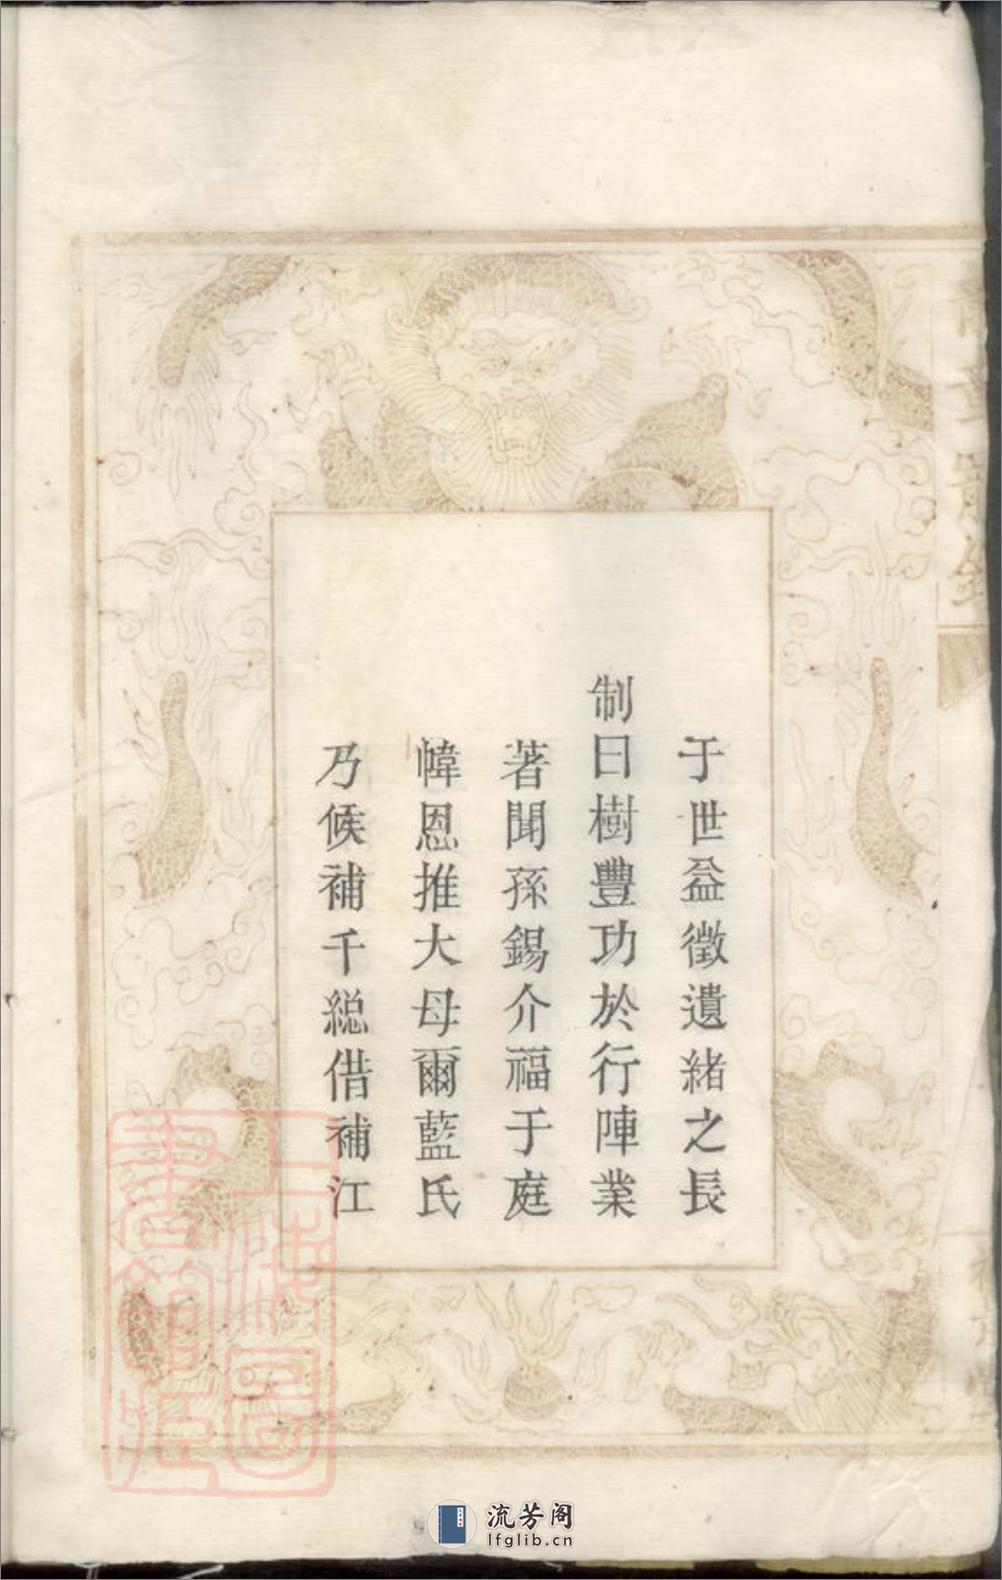 于世益徵遺緒之長
制曰樹豐功於行陣業
著聞孫錫介福于庭
幃恩推大母爾藍氏
乃候補千緫借補江
上海圖書館藏
流芳阁
lfglib.cn